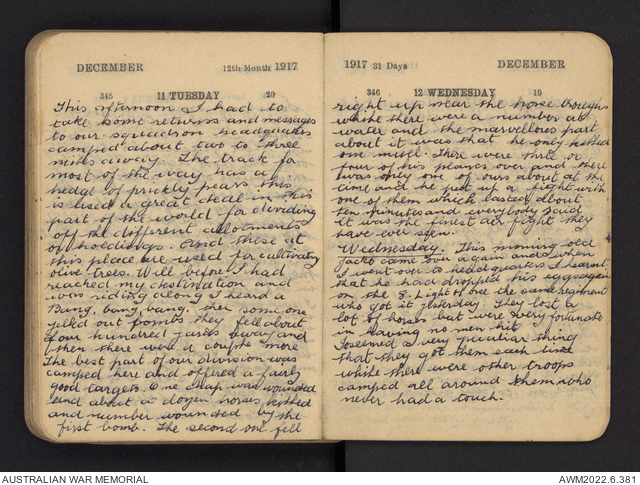 DECEMBER 12th Month 1917
345 11 TUESDAY 20
This afternoon I had to
take some returns and messages
to our squadron headquarters
camped about two to three
miles away. The track for
most of the way has a
hedge of prickly pears this
is used a great deal in this
part of the world for dividing
off the different allotments
or holdings. And these at
this place are used for cultivating
olive trees. Well before I had
reached my destination and
was riding along I heard a
Bang, bang, bang. then some one
yelled out bombs they fell about
four hundred yards away and
then there were a couple more
the best part of our division was
camped here and offered a fairly
good target. One chap was wounded
and about a dozen horses killed
and number wounded by the
first bomb. The second one fell
1917 31 Days DECEMBER
346 12 WEDNESDAY 19
right up near the horse troughs
while there were a number at
water and the marvellous part
about it was that he only killed
one mule. There were three or
four of his planes over and there
was only one of ours about at the
time and he put up a fight with
one of them which lasted about
ten minutes and everybody said
it was the finest air fight they
have ever seen.
Wednesday. This morning old
Jacko came over again and when
I went over to headquarters I learnt
that he had dropped his eggs again
on the 8. Light Horse the same regiment
who got it yesterday. They lost a
lot of horses but were very fortunate
in having no men hit
It seemed a very peculiar thing
that they got them each time
while there were other troops
camped all around them who
never had a touch.
AUSTRALIAN WAR MEMORIAL AWM2022.6.381